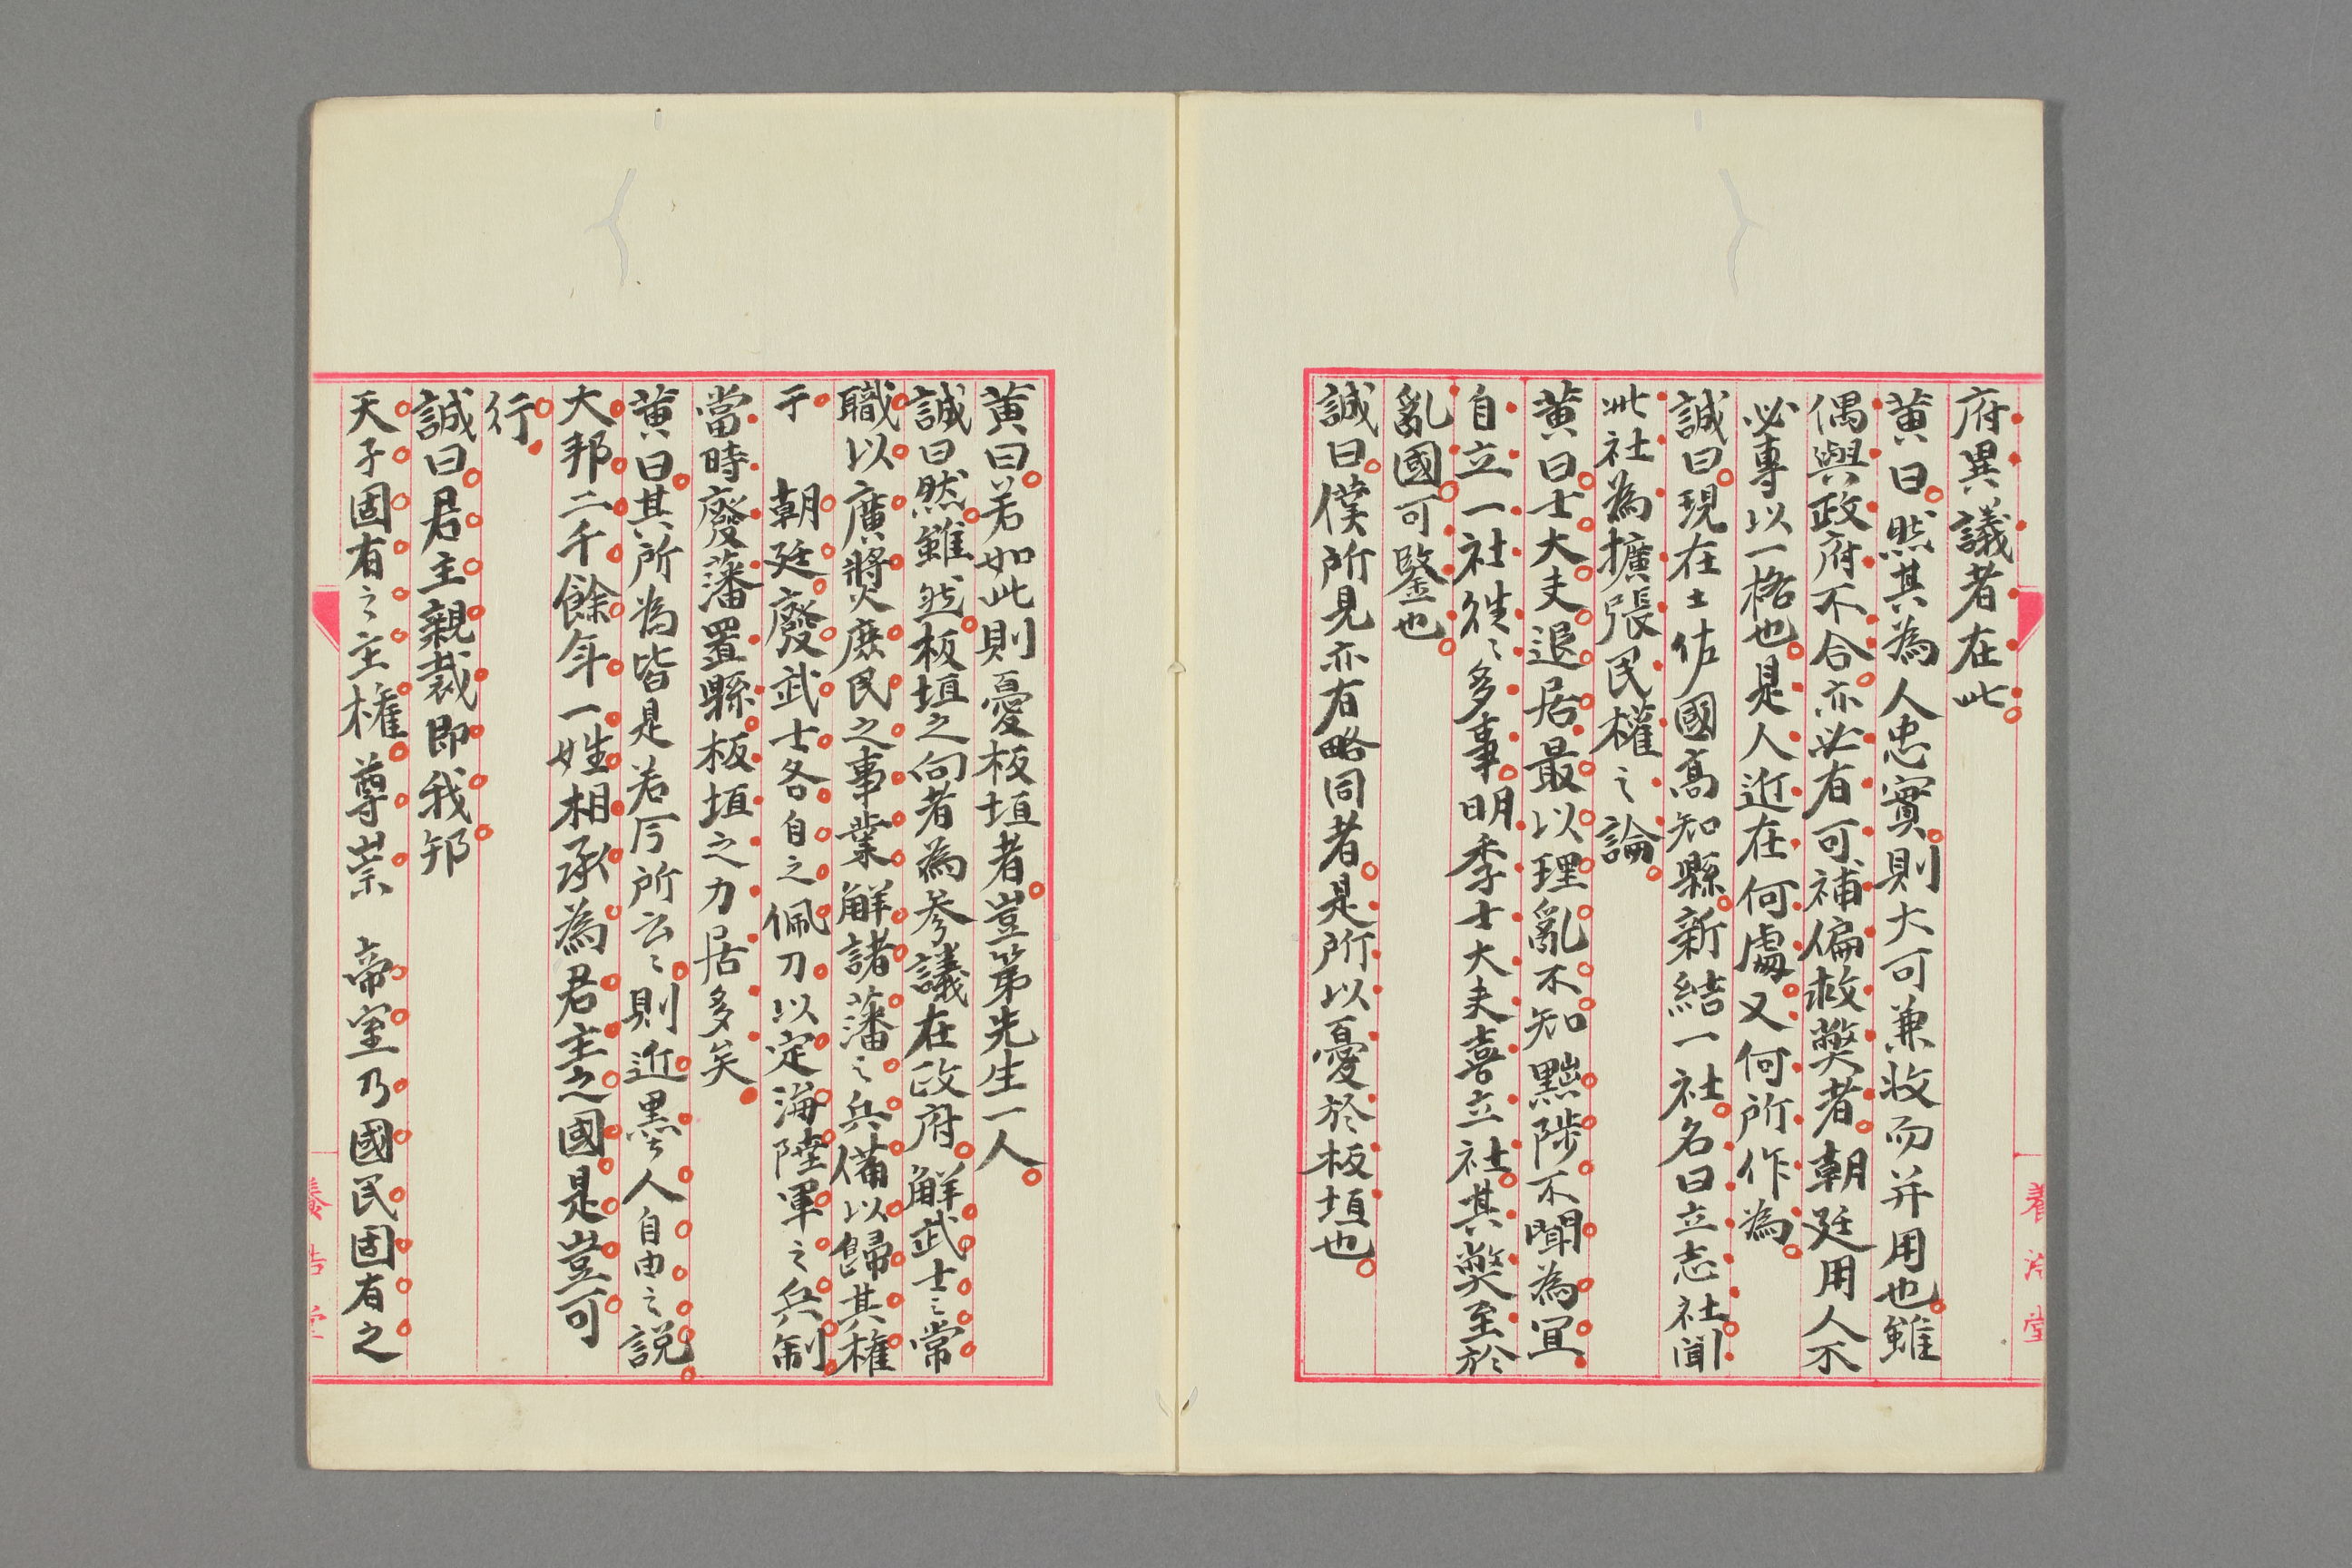 府異議者在此
黄曰然其為人忠實則大可兼收而并用也雖
偶與政府不合亦必有可補偏救獘者朝廷用人不
必專以一格也是人近在何處又何所作為
誠曰現在土佐國高知縣新結一社名曰立志社聞
此社為擴張民權之論
黄曰士大夫退居最以理亂不知黜陟不聞為宜
自立一社徃〻多事明季士大夫喜立社其獘至於
亂國可鑒也
誠曰僕所見亦有略同者是所以憂於板垣也
養浩堂
黄曰若如此則憂板垣者豈第先生一人
誠曰然雖然板垣之向者為参議在政府觧武士之常
職以廣奬庶民之事業觧諸藩之兵備以歸其權
于　朝廷廢武士各自之佩刀以定海陸軍之兵制
當時廢藩置縣板垣之力居多矣
黄曰其所為皆是若所云〻則近墨人自由之説
大邦二千餘年一姓相承為君主之國是豈可
行
誠曰君主親裁即我邦
天子固有之主權尊崇　帝室乃國民固有之
養浩堂